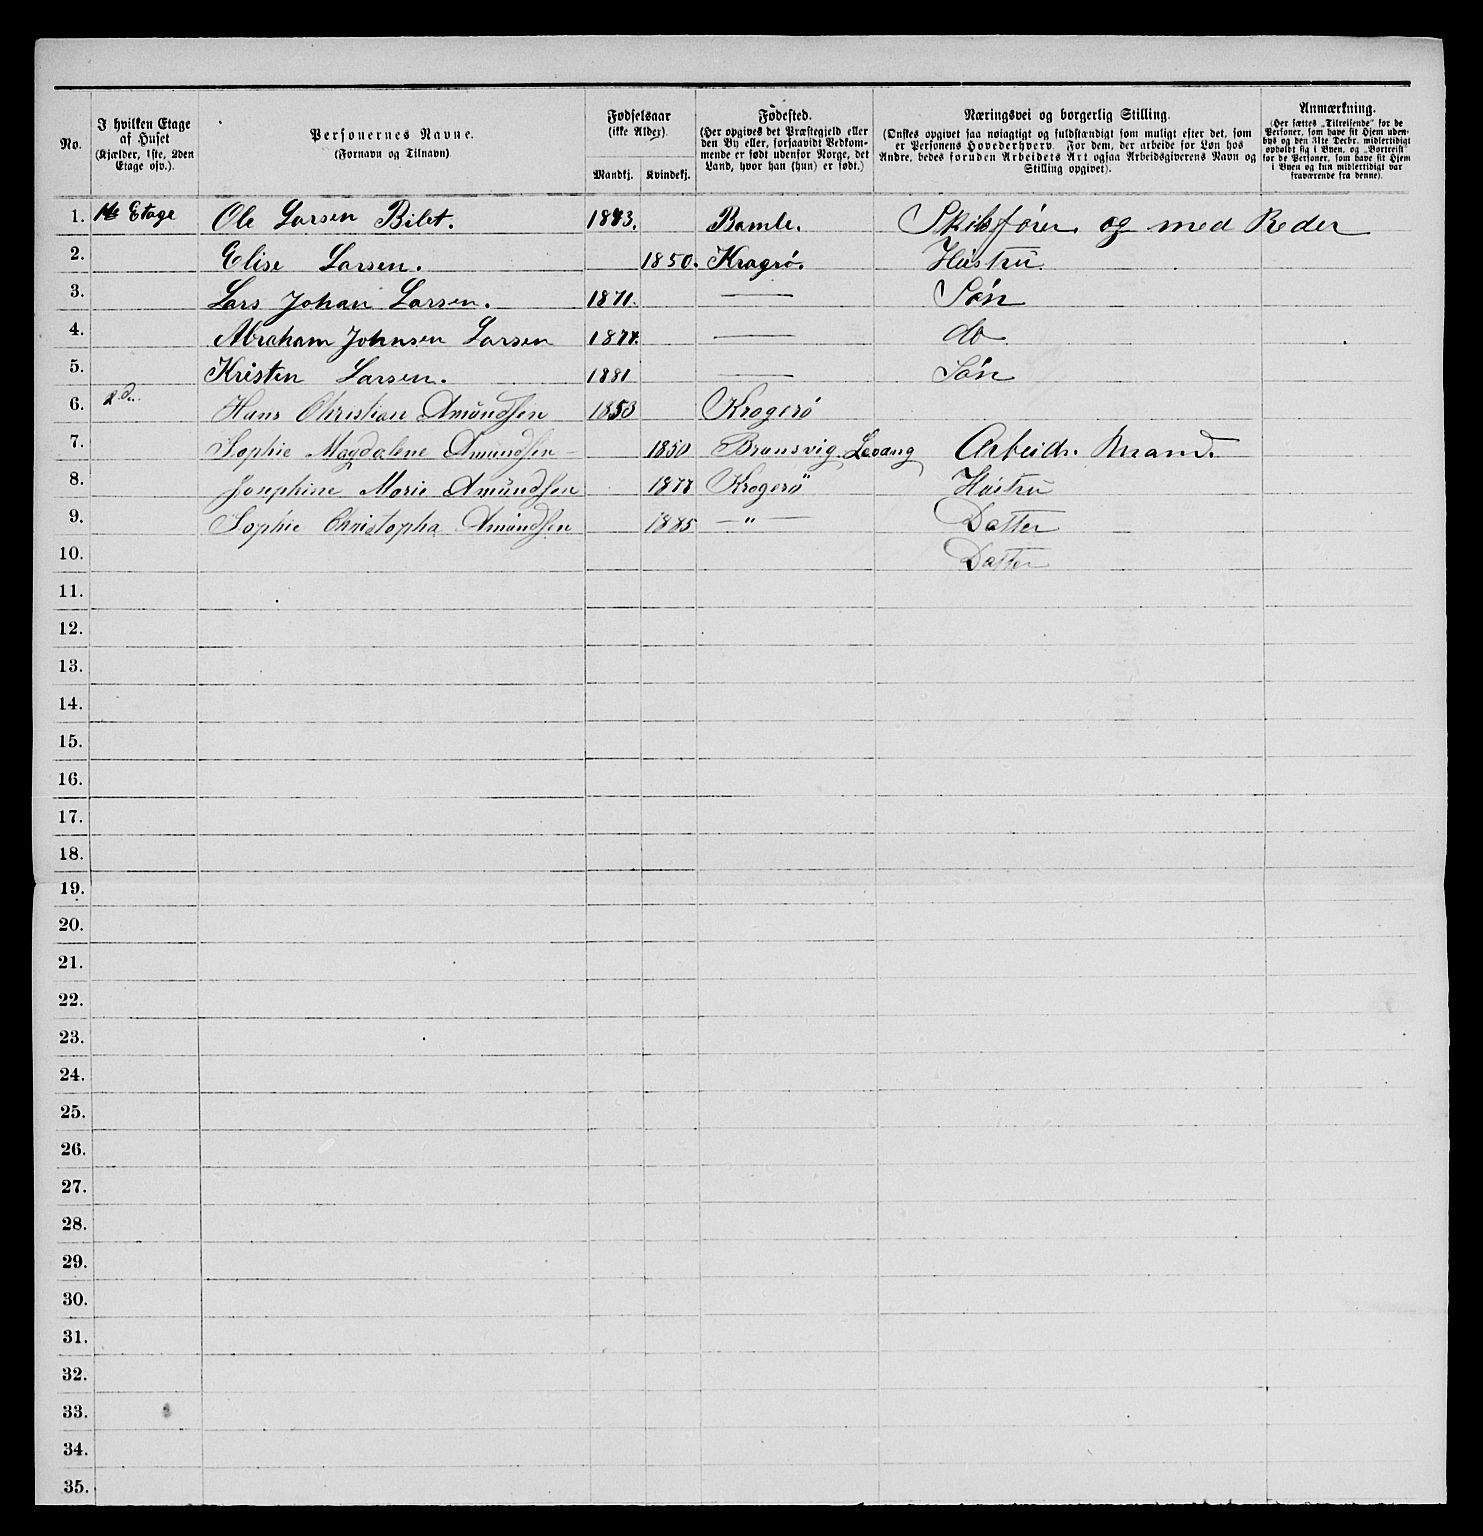 No.
I hvilken Etage af Huset (Kjælder, 1ste, 2den Etage osv.).
Personernes Navne. (Fornavn og Tilnavn)
Fødselsaar (ikke Alder).
Mandkj. Kvindekj.
Fødested. (Her opgives det Præstegjeld eller den By eller, forsaavidt Vedkommende er født udenfor Norge, det Land, hvor han (hun) er født.)
Næringsvei og borgerlig Stilling. (Ønskes opgivet saa nøiagtigt og fuldstændigt som muligt efter det, som er Personens Hovederhverv. For dem, der arbeide for Løn hos Andre, bedes foruden Arbeidets Art ogsaa Arbeidsgiverens Navn og Stilling opgivet).
Anmærkning. (Her sættes „Tilreisende" for de Personer, som have sit Hjem udenbys og den 31te Decbr. midlertidigt opholdt sig i Byen, og „Bortreist" for de Personer, som have sit Hjem i Byen og kun midlertidigt var fraværende fra denne).
1. 1ste Etage Ole Larsen Bilet. 1843. Bamle. Skibsfører og med Reder
2. Elise Larsen. 1850. Kragrö. Hustru.
3. Lars Johan Larsen. 1871. — Sön
4. Abraham Johnsen Larsen 1874. — do
5. Kristen Larsen. 1881 — Sön
6. Hans Christian Amundsen 1853 Krogerö
7. Sophie Magdalene Amundsen 1850 Brunsvig Levang Arbeids. Mand.
8. Josephine Marie Amundsen 1877 Krogerö Hustru
9. Sophie Christopha Amundsen 1885 — " — Datter
10. Datter
11.
12.
13.
14.
15.
16.
17.
18.
19.
20.
21.
22.
23.
24.
25.
26.
27.
28.
29.
30.
31.
32.
33.
34.
35.